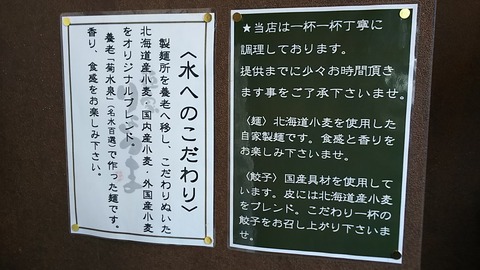 〈水へのこだわり〉
製麺所を養老へ移し、こだわりぬいた
北海道産小麦・国内産小麦・外国産小麦
をオリジナルブレンド。
養老「菊水泉」(名水百選)で作った麺です。
香り、食感をお楽しみ下さい。
★当店は一杯一杯丁寧に
調理しております。
提供までに少々お時間頂き
ます事をご了承下さいませ。
〈麺〉北海道小麦を使用した
自家製麺です。食感と香りを
お楽しみ下さいませ。
〈餃子〉国産具材を使用して
います。皮には北海道産小麦
をブレンド。こだわり一杯の
餃子をお召し上がり下さいま
せ。